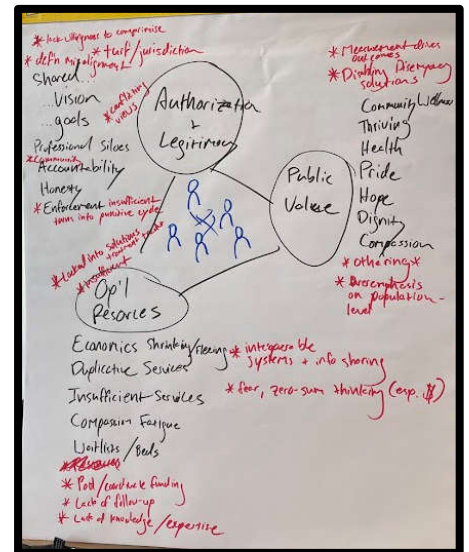 * lack willingness to compromise
* defn misalignment
* turf/jurisdiction
Shared...
...Vision
...goals
* conflicting views
Professional Siloes
* Community
Accountability
Honesty
* Enforcement insufficient
turn into punitive cycle
Authorization
+
Legitimacy
Public
Value
* Measurement drives
outcomes
* Disabling Discrepancy
solutions
Community Wellness
Thriving
Health
Pride
Hope
Dignity
Compassion
* othering *
* Overemphasis
on population-
level
* Locked into solutions
treatment
* insufficient
Op'l
Resources
Economics Shrinking/Fleeing
Duplicative Services
Insufficient Services
Compassion Fatigue
Waitlists/Beds
* interoperable
systems + info sharing
* fear, zero-sum thinking (esp. $)
* Pool/coordinate funding
* Lack of follow-up
* Lack of knowledge/expertise